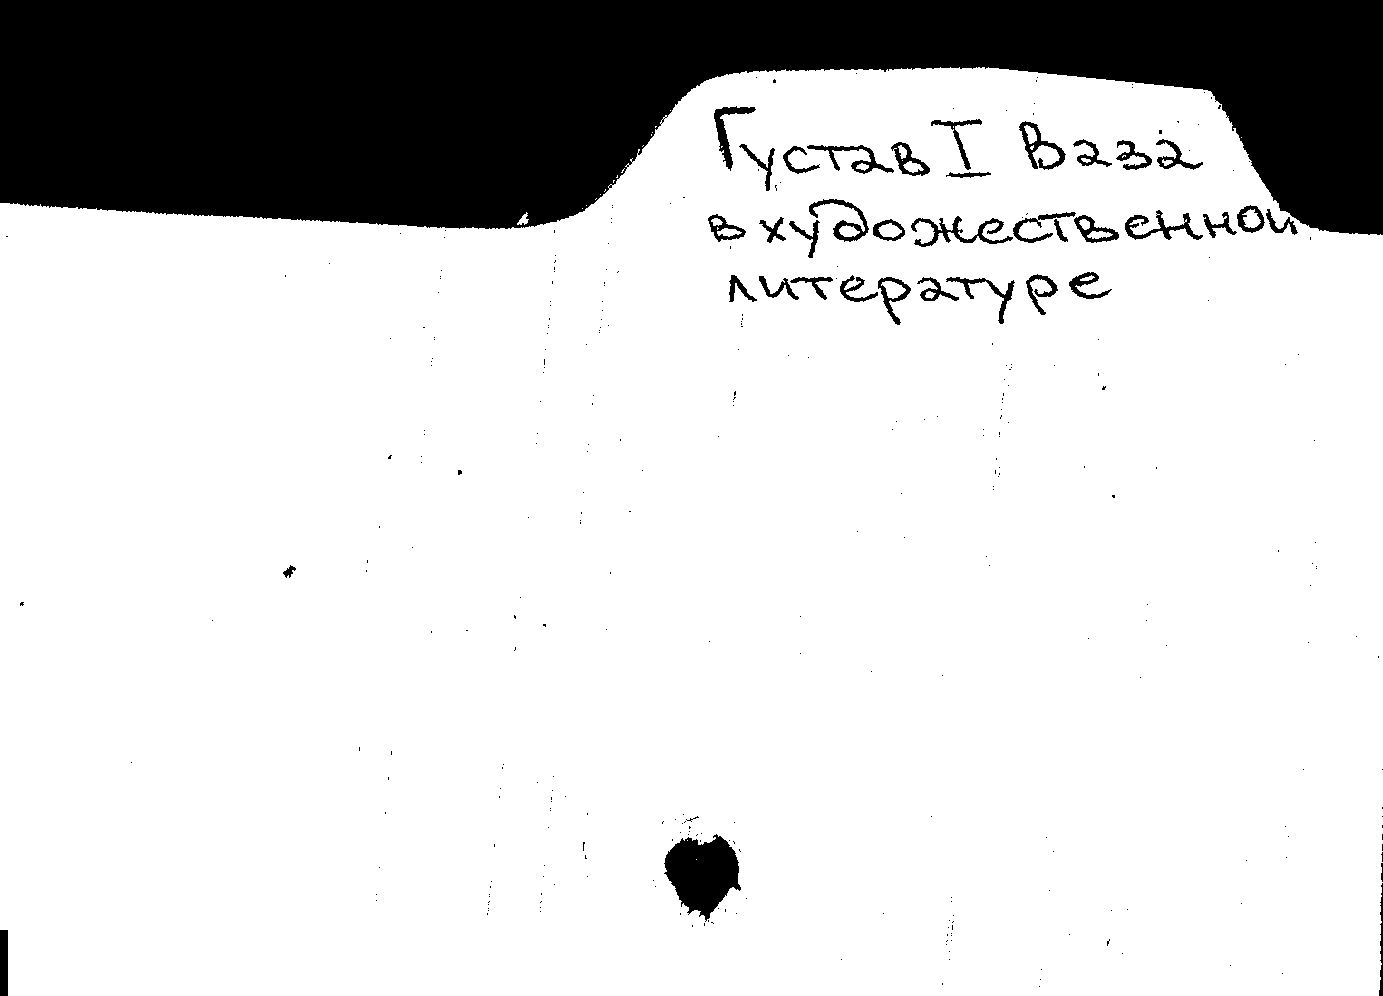 Густав I Ваза
в художественной
литературе